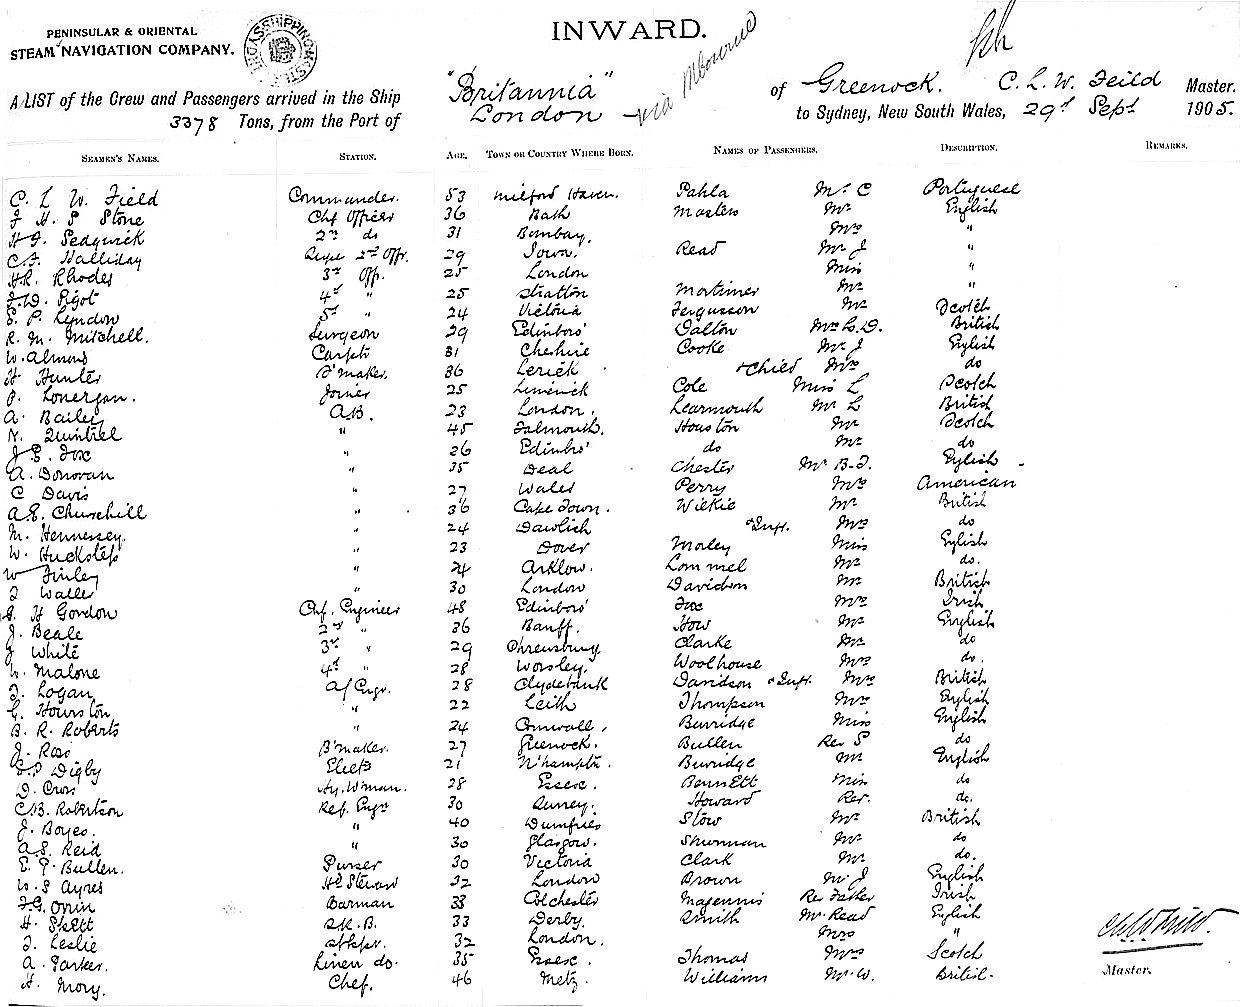 PENINSULAR & ORIENTAL
STEAM NAVIGATION COMPANY.
INWARD.
A LIST of the Crew and Passengers arrived in the Ship "Britannia" of Greenock. C. L. W. Feild Master.
3378 Tons, from the Port of London via Mbourne to Sydney, New South Wales, 29th Sept 1905.
SEAMEN'S NAMES. STATION. AGE. TOWN OR COUNTRY WHERE BORN. NAMES OF PASSENGERS. DESCRIPTION. REMARKS.
C. L W. Field Commander. 53 Milford Haven. Pahla Mr C Portuguese
F H. S Stone Chf Officer 36 Bath Masters Mr English
H. F. Sedgwick 2nd do 31 Bombay. Mrs "
C. F. Halliday 2nd Offr. 29 Town. Read Mr J "
H.R. Rhodes 3rd Off. 25 London Miss "
F.W. Pigot 4th " 25 Stratton Mortimer Mr "
E. P. Lyndow 5th " 24 Victoria Fergusson Mr Scotch
R. M. Mitchell. Surgeon 29 Edinboro' Dalton Mrs L.D. British
W. Almond Carptr 31 Cheshire Cooke Mr J English
H Hunter B'maker. 36 Lerick + child Mrs do
P. Lonergan. Joiner 25 Limerick Cole Miss L Scotch
A. Bailey A.B. 23 London. Learmouth Mr L British
N. Quintrel " 45 Falmouth. Houston Mr Scotch
J E. Fox " 26 Edinbro' do Mr do
A. Donovan " 35 Deal Chester Mr B.F. English
C Davis " 27 Wales Perry Mrs American
A.E. Churchill " 36 Cape Town. Wilkie Mr British
M. Hennessey. " 24 Dawlish + Inft. Mrs do
W. Huckstep " 23 Dover Morley Miss English
W Finley " 24 Arklow. Lommel Mr do.
F Waller " 30 London Davidson Mr British
G. H Gordon Chf. Engineer 48 Edinboro' Fox Mrs Irish
J. Beale 2nd " 36 Banff. How Mr English
J White 3rd " 29 Shrewsbury. Clarke Mr do
W. Malone 4th " 28 Worsley. Woolhouse Mrs do.
F. Logan A/Engr. 28 Clydebank Davidson + Inft. Mrs British
G. Hourston " 22 Leith Thompson Mrs English
B. R. Roberts " 24 Cornwall. Burridge Miss English
J. Ross B'maker. 27 Greenock. Bullen Rev S do
E.P Digby Electr 21 N'hampton. Burridge Mr English
D. Cross Hy. W'man. 28 Essex. Bennett Miss do
C.B. Robertson Ref. Engr 30 Surrey. Howard Rev. do.
J. Boyes. " 40 Dumfries Slow Mr British
A.E. Reid " 30 Glasgow. Shurman Mr do
E. P. Bullen. Purser 30 Victoria Clark Mr do.
W. S Ayres Hd Steward 32 London Brown Mr J English
F.G. Orrin Barman 38 Colchester Magennis Rev Father Irish
H. Skett S.K.B. 33 Derby. Smith Mr Read English
F. Leslie 32 London. Mrs "
A. Parker. Linen do. 35 Essex. Thomas Mrs Scotch
H. Mory. Chef. 46 Metz. Williams Mr W. British.
Master.